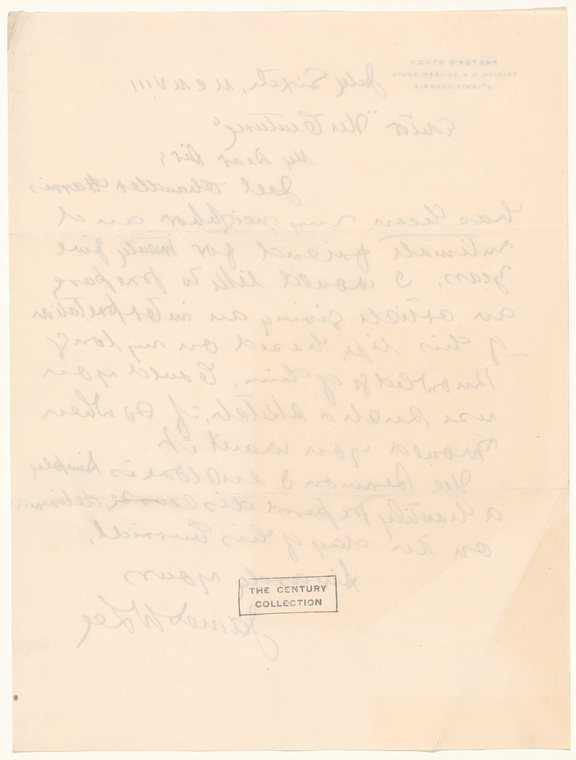 PASTOR'S STUDY
TRINITY M. E. CHURCH, SOUTH
ATLANTA, GEORGIA
July Sixth, MCMVIII
Editor "The Century"
My Dear Sir,
Joel Chandler Harris
has been my neighbor and
intimate friend for twenty five
years. I would like to prepare
an article giving an interpretation
of his life based on my long
knowledge of him. Could you
use such a sketch, if so when
would you want it
The sermon I enclose is simply
a hastily prepared discourse delivered
on the day of his burial.
Sincerely yours
THE CENTURY
COLLECTION
James W Lee